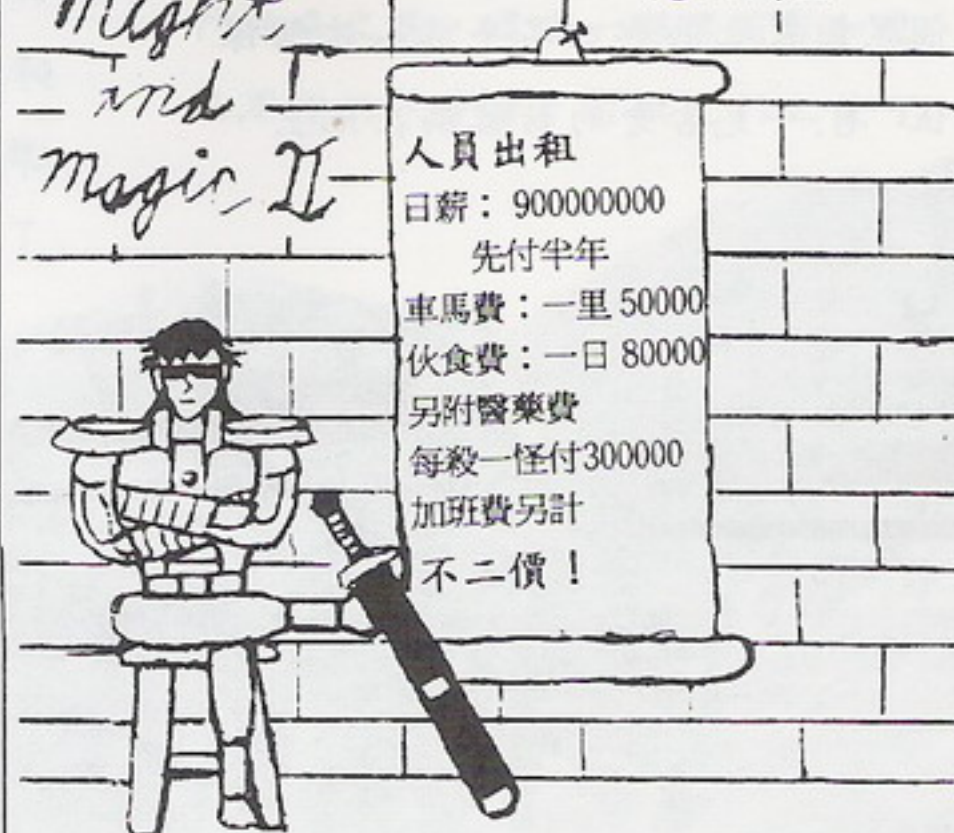 Might
and
Magic II
人員出租
日薪：900000000
先付半年
車馬費：一里 50000
伙食費：一日 80000
另附醫藥費
每殺一怪付300000
加班費另計
不二價！